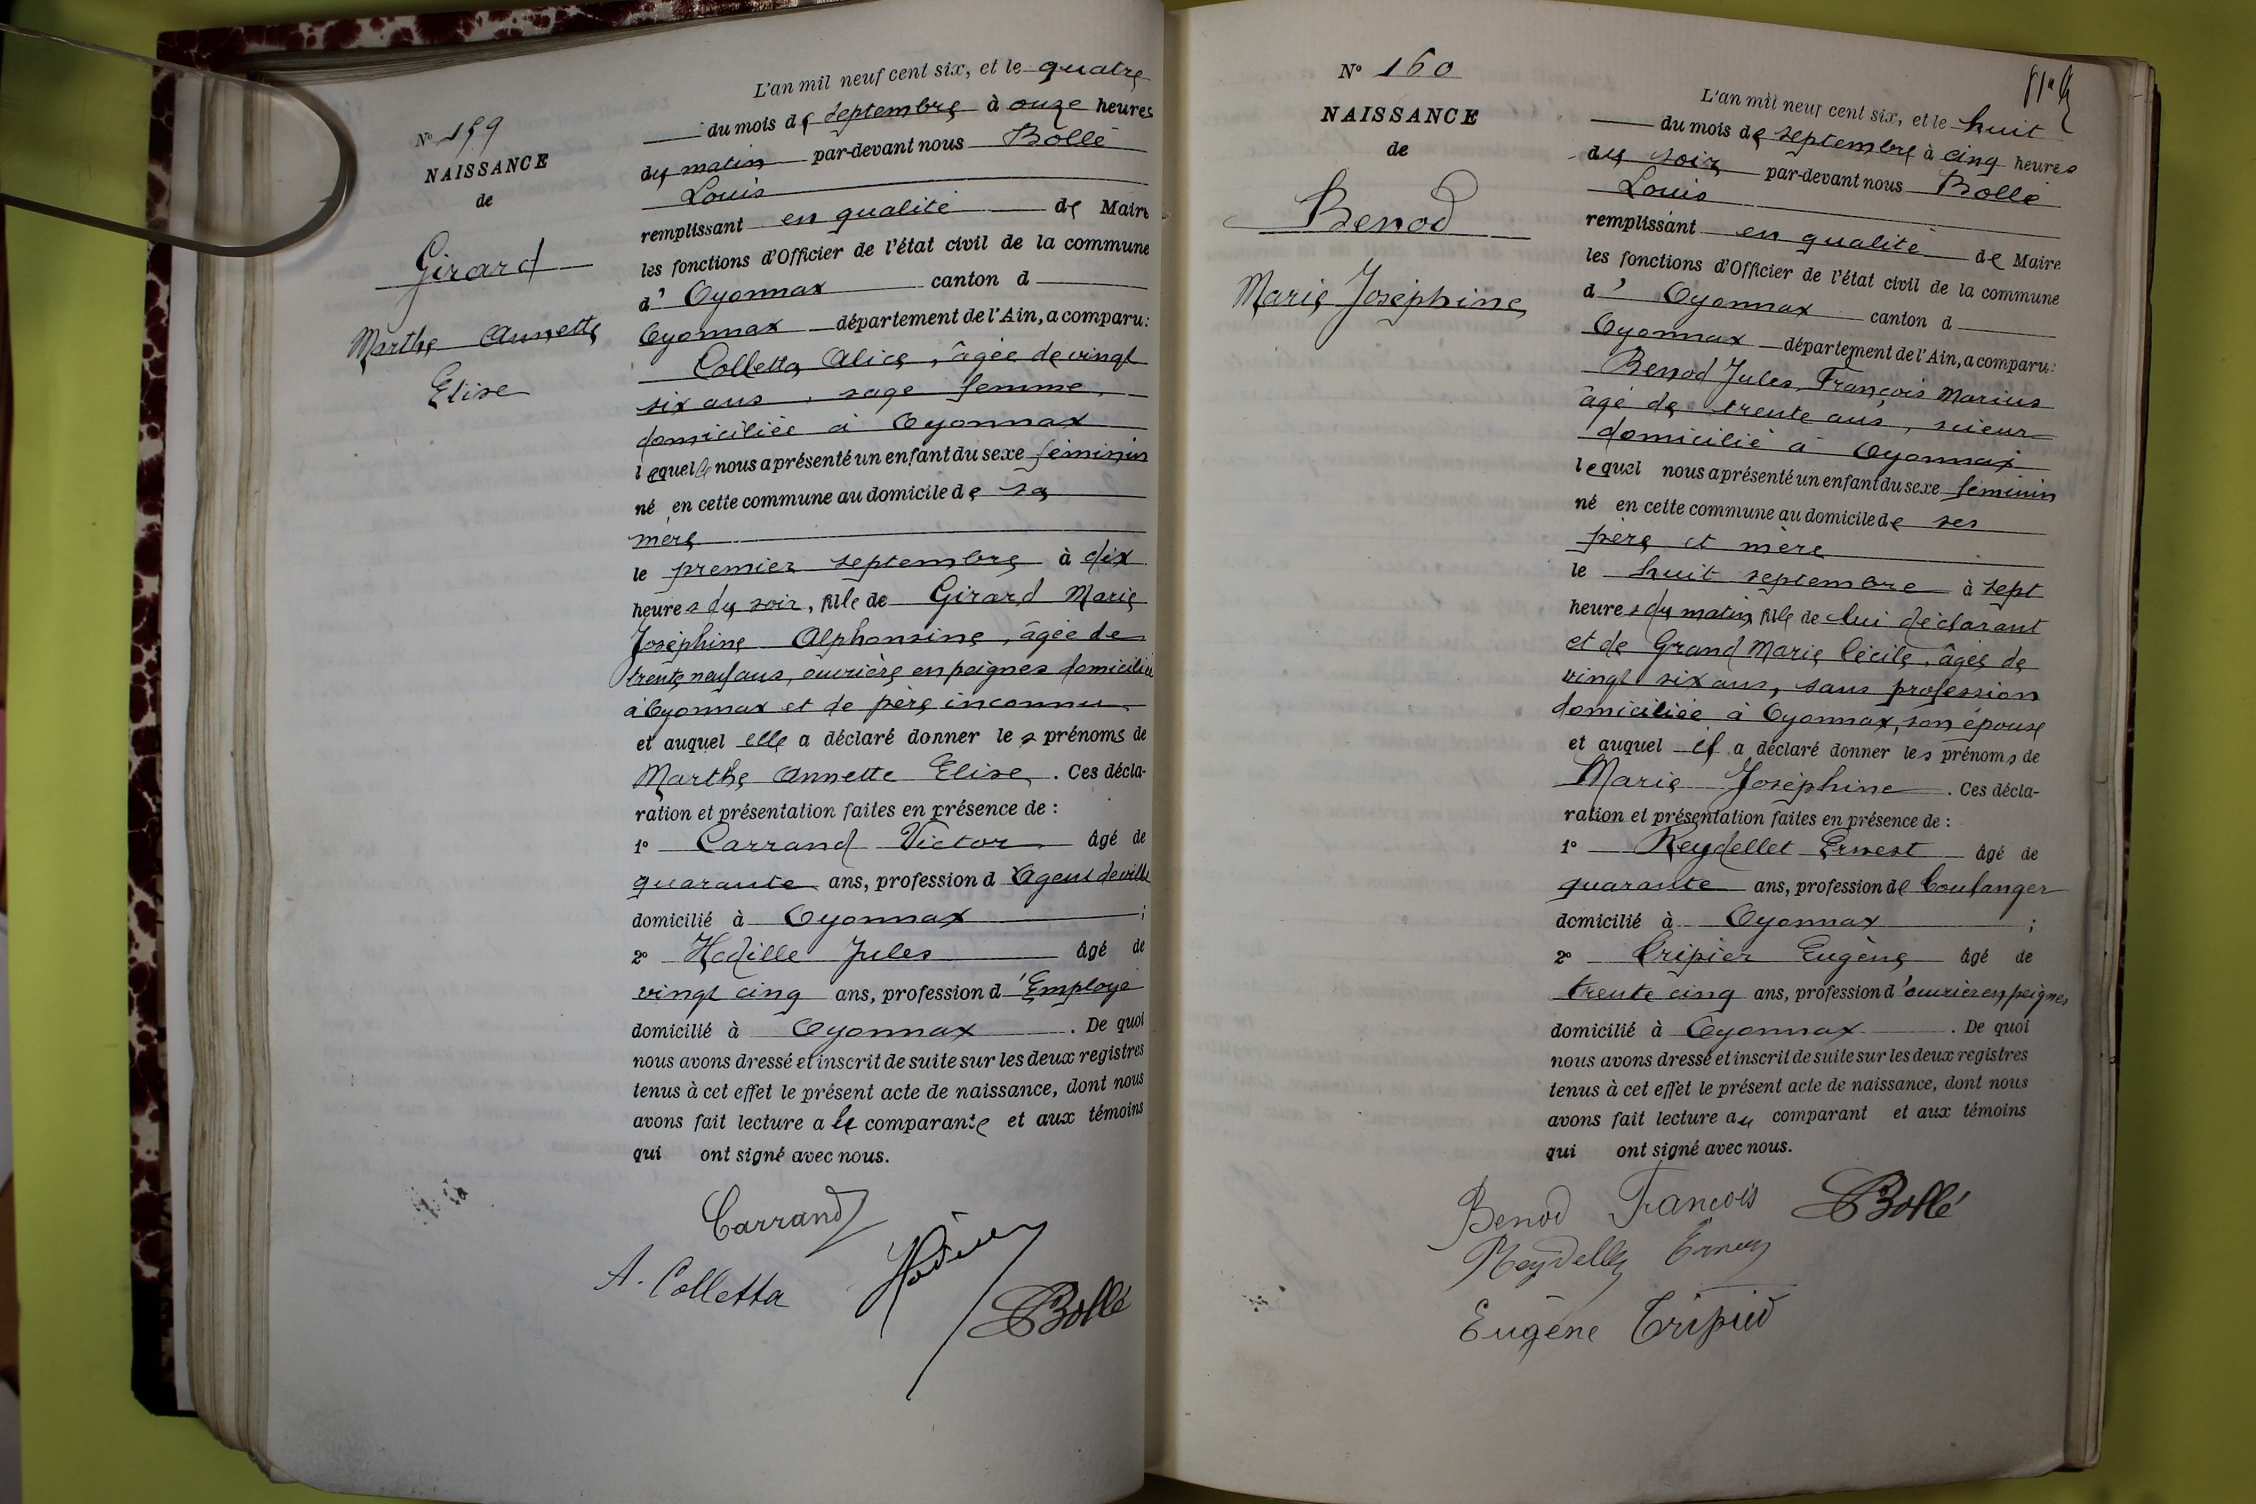 N° 159
NAISSANCE
de
Girard
Marthe Annette
Elise
L'an mil neuf cent six, et le quatre
du mois de septembre à onze heures
du matin par-devant nous Bollé
Louis
remplissant en qualité de Maire
les fonctions d'Officier de l'état civil de la commune
d' Oyonnax canton d
Oyonnax département de l'Ain, a comparu:
Colletta Alice, âgée de vingt
six ans, sage femme,
domiciliée à Oyonnax
lequelle nous a présenté un enfant du sexe féminin
né en cette commune au domicile de sa
mère
le premier septembre à dix
heures du soir, fille de Girard Marie
Joséphine Alphonsine, âgée de
trente neuf ans, ouvrière en peignes domiciliée
à Oyonnax et de père inconnu
et auquel elle a déclaré donner les prénoms de
Marthe Annette Elise. Ces décla-
ration et présentation faites en présence de :
1° Carrand Victor âgé de
quarante ans, profession d Agent de ville
domicilié à Oyonnax ;
2° Hodille Jules âgé de
vingt cinq ans, profession d'Employé
domicilié à Oyonnax. De quoi
nous avons dressé et inscrit de suite sur les deux registres
tenus à cet effet le présent acte de naissance, dont nous
avons fait lecture a la comparante et aux témoins
qui ont signé avec nous.
Carrand
A. Colletta
Bollé
N° 160
NAISSANCE
de
Benod
Marie Joséphine
L'an mil neuf cent six, et le huit
du mois de septembre à cinq heures
du soir par-devant nous Bollé
Louis
remplissant en qualité de Maire
les fonctions d'Officier de l'état civil de la commune
d' Oyonnax canton d
Oyonnax département de l'Ain, a comparu:
Benod Jules François Marius
âgé de trente ans, scieur
domicilié à Oyonnax
lequel nous a présenté un enfant du sexe féminin
né en cette commune au domicile de ses
père et mère
le huit septembre à sept
heures du matin, fille de lui déclarant
et de Grand Marie Cécile, âgée de
vingt six ans, sans profession
domiciliée à Oyonnax, son épouse
et auquel il a déclaré donner les prénoms de
Marie Joséphine. Ces décla-
ration et présentation faites en présence de :
1° Reydellet Ernest âgé de
quarante ans, profession de boulanger
domicilié à Oyonnax ;
2° Tripier Eugène âgé de
trente cinq ans, profession d'ouvrier en peignes
domicilié à Oyonnax. De quoi
nous avons dressé et inscrit de suite sur les deux registres
tenus à cet effet le présent acte de naissance, dont nous
avons fait lecture au comparant et aux témoins
qui ont signé avec nous.
Benod François Bollé
Eugène